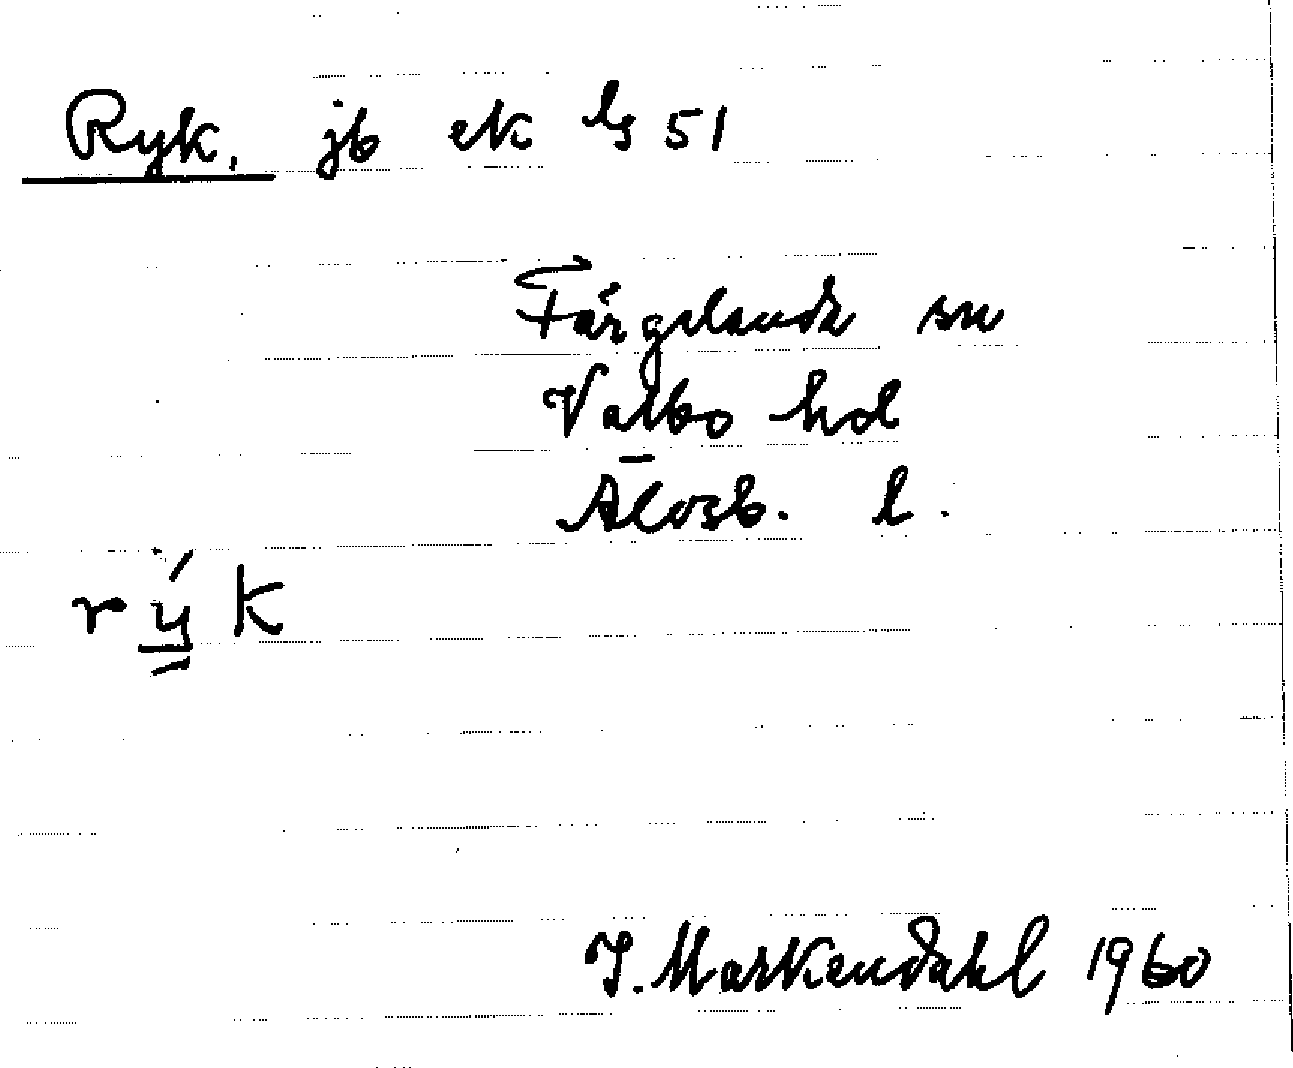 Ryk, jb ek ls 51
Färgelanda sn
Valbo hd
Älvsb. l.
rýk
I. Markendahl 1960